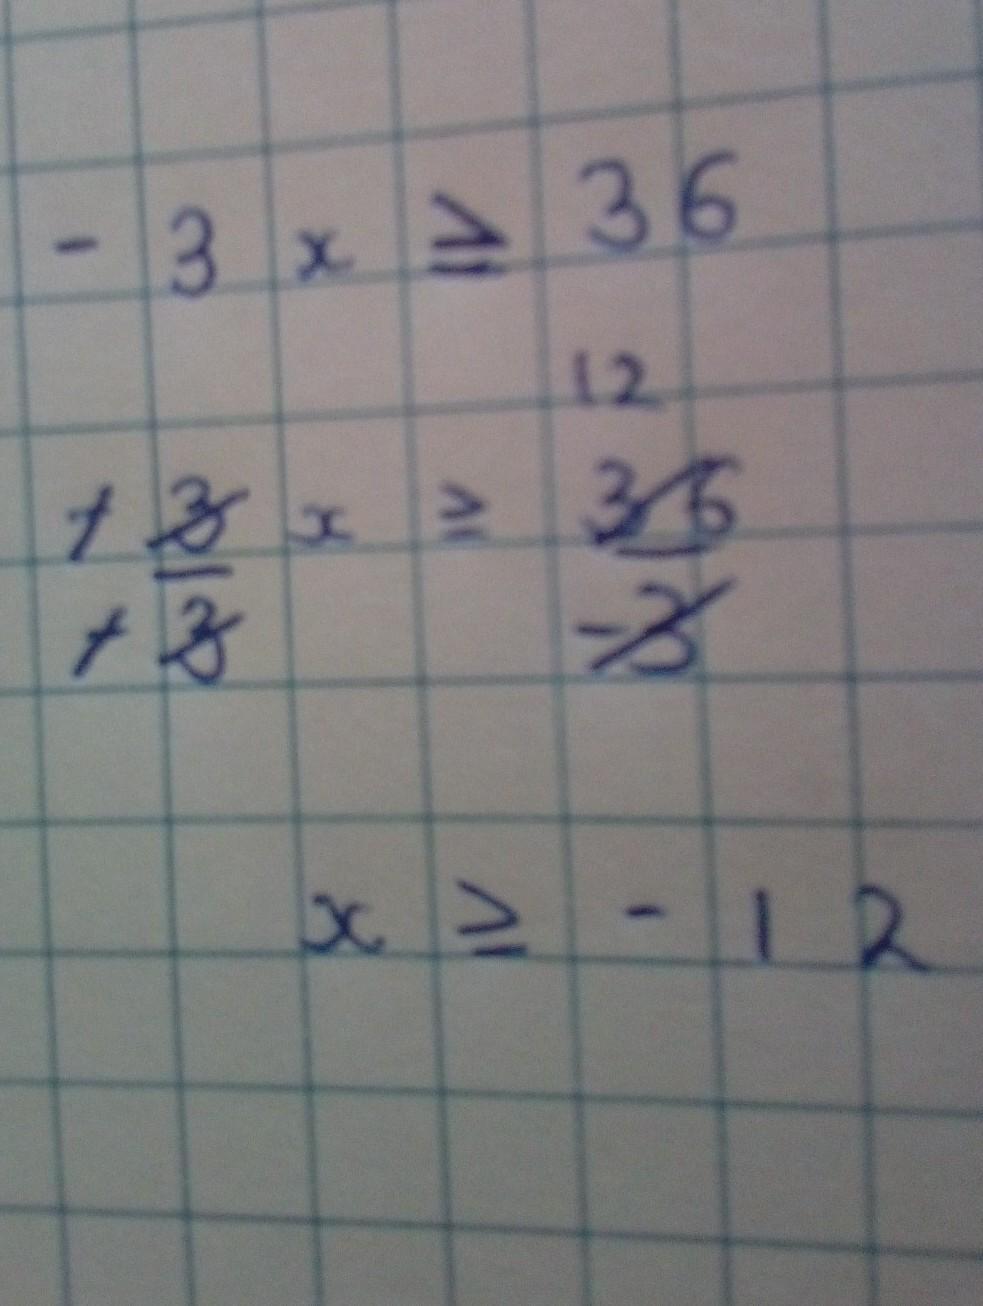 - 3 x ≥ 36
12
- 3 x ≥ 36
- 3 - 3
x ≥ - 12